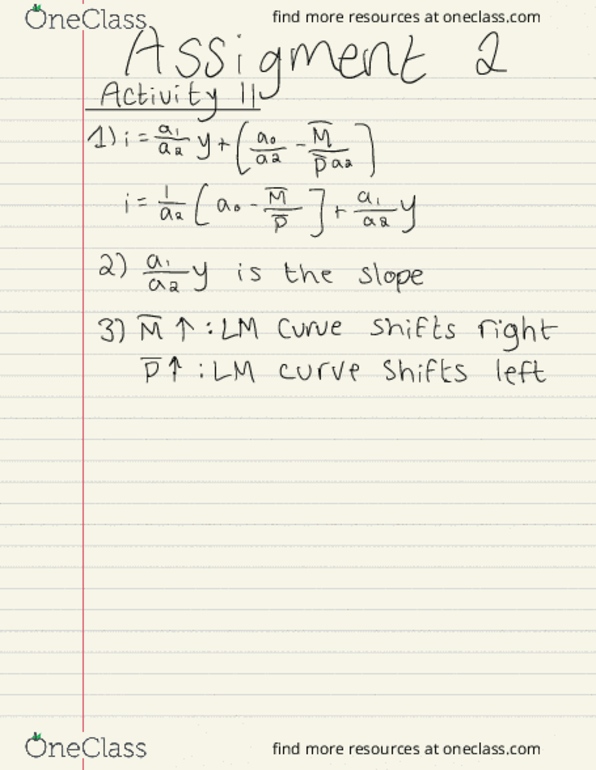 OneClass
find more resources at oneclass.com
Assigment 2
Activity 11
1) i = a₁/a₂ y + (a₀/a₂ - M̅/P̅a₂)
i = 1/a₂ [a₀ - M̅/P̅] + a₁/a₂ y
2) a₁/a₂ y is the slope
3) M̅ ↑ : LM curve shifts right
P̅ ↑ : LM curve shifts left
OneClass
find more resources at oneclass.com